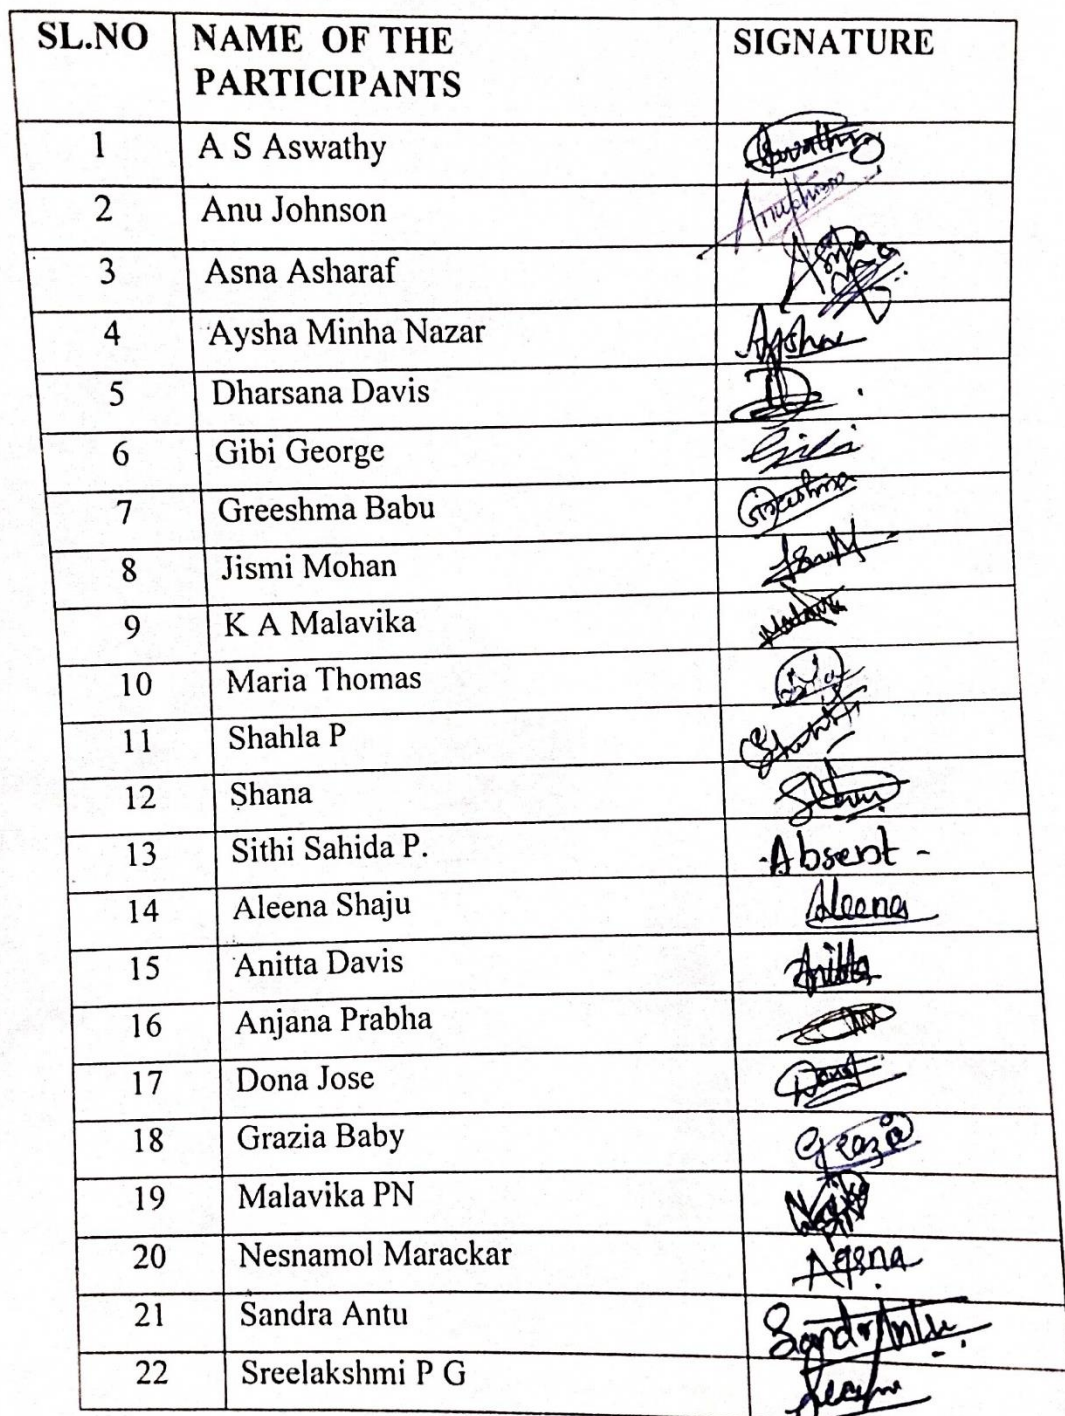 SL.NO NAME OF THE PARTICIPANTS SIGNATURE
1 A S Aswathy Aswathy
2 Anu Johnson
3 Asna Asharaf
4 Aysha Minha Nazar Aysha
5 Dharsana Davis
6 Gibi George Gibi
7 Greeshma Babu Greeshma
8 Jismi Mohan
9 K A Malavika
10 Maria Thomas
11 Shahla P
12 Shana
13 Sithi Sahida P. -Absent-
14 Aleena Shaju Aleena
15 Anitta Davis Anitta
16 Anjana Prabha
17 Dona Jose
18 Grazia Baby Grazia
19 Malavika PN
20 Nesnamol Marackar
21 Sandra Antu Sandra Antu
22 Sreelakshmi P G